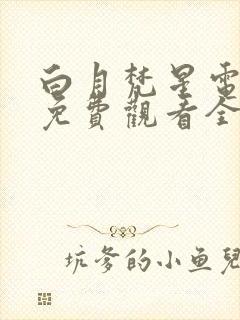 白月梵星電
免費觀看全
坑爹的小鱼兒